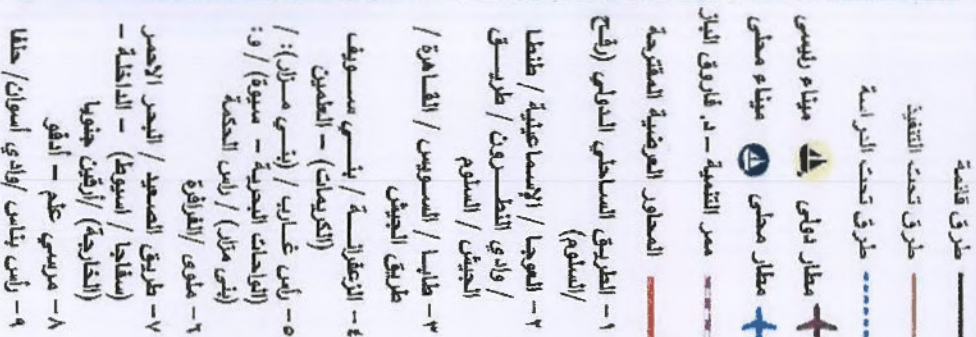 طرق قائمة
طرق تحت التنفيذ
طرق تحت الدراسة
مطار دولى
ميناء رئيسى
مطار محلى
ميناء محلى
ممر التنمية - د. فاروق الباز
المحاور العرضية المقترحة
١- الطريق الساحلي الدولي (رفح
/السلوم)
٢- العوجا / الإسماعيلية / طنطا
/ وادي النطرون / طريق
الجيش / السلوم
٣- طابا / السويس / القاهرة /
طريق الجيش
٤- الزعفرانة / بني سويف
(الكريمات) - العلمين
٥- رأس غارب / (بني مزار): /
(الواحات البحرية - سيوة) / و:
(بنى مزار) / راس الحكمة
٦- ملوى / الفرافرة
٧- طريق الصعيد / البحر الاحمر
(سفاجا / اسيوط) - الداخلة -
(الخارجة) / أرقين جنوبا
٨- مرسي علم - أدفو
٩- رأس بناس / وادي أسوان / حلفا